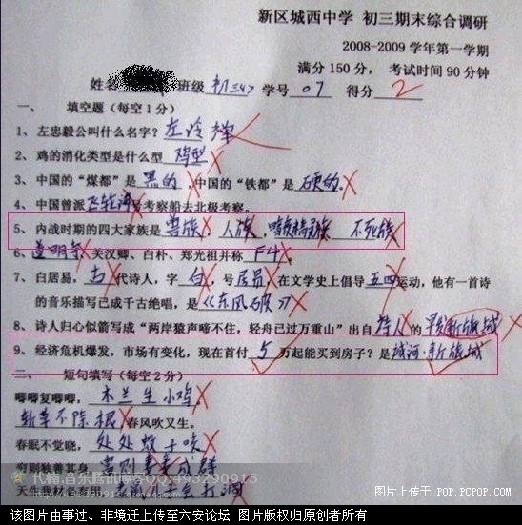 新区城西中学 初三期末综合调研
2008-2009 学年第一学期
满分 150 分, 考试时间 90 分钟
姓名 班级 初三(4) 学号 07 得分 2
一、 填空题(每空 1 分)
1、左忠毅公叫什么名字?左冷禅
2、鸡的消化类型是什么型 鸡型
3、中国的“煤都”是 黑的 ,中国的“铁都”是 硬的。
4、中国曾派飞轮海号考察船去北极考察。
5、内战时期的四大家族是 兽族 人族 , 暗夜精灵族 不死族
6、道明寺、关汉卿、白朴、郑光祖并称 F4 。
7、白居易, 古 代诗人,字 白 ,号 居员 在文学史上倡导 五四 运动,他有一首诗
的音乐描写已成千古绝唱,是《东风破》
8、诗人归心似箭写成“两岸猿声啼不住,轻舟已过万重山”出自 诗人 的 新旅城
9、经济危机爆发,市场有变化,现在首付 5 万起能买到房子?是 域河·新旅城
二、 短句填写(每空 2 分)
唧唧复唧唧, 木兰生小鸡
斩草不除根 春风吹又生,
春眠不觉晓, 处处蚊子咬
穷则独善其身, 富则妻妾成群
天生我材必有用,
代翔.音乐腾讯博客 QQ:493290913
图片上传于 POP.PCPOP.COM
该图片由事过、非境迁上传至六安论坛 图片版权归原创者所有